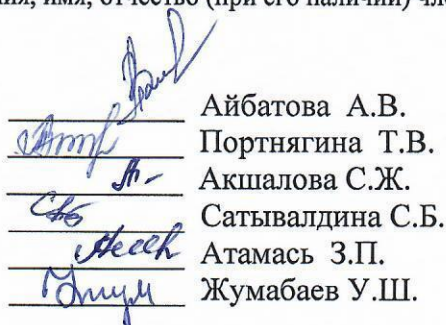 имя, отчество (при его наличии)
Айбатова А.В.
Портнягина Т.В.
Акшалова С.Ж.
Сатывалдина С.Б.
Атамась З.П.
Жумабаев У.Ш.